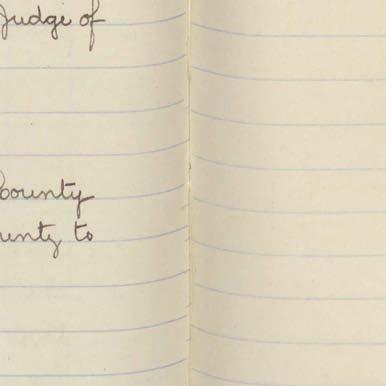 Judge of
County
unty to